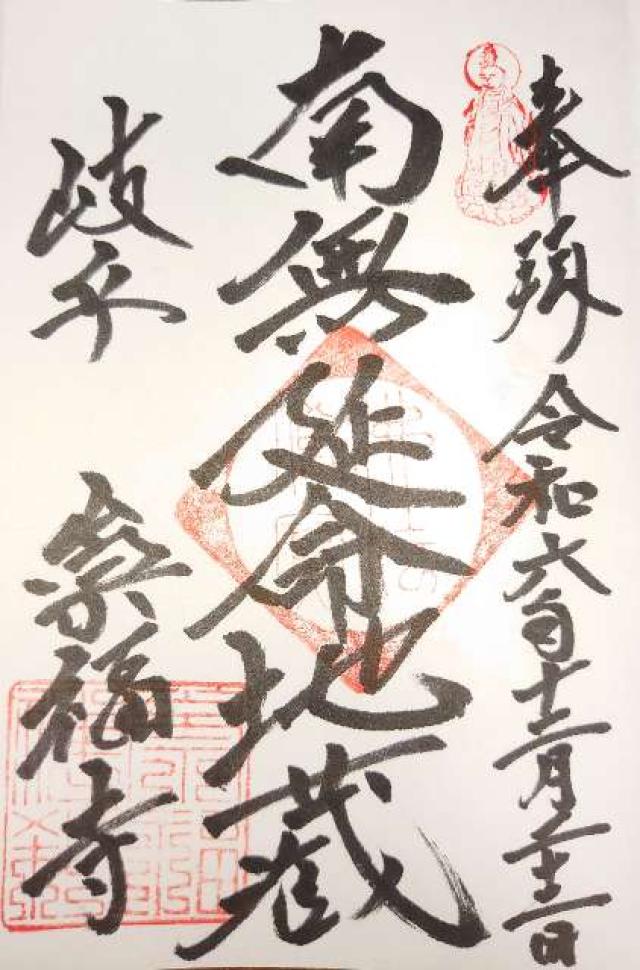 奉拝 令和六年十二月二十二日
南無延命地蔵
岐阜 崇福寺